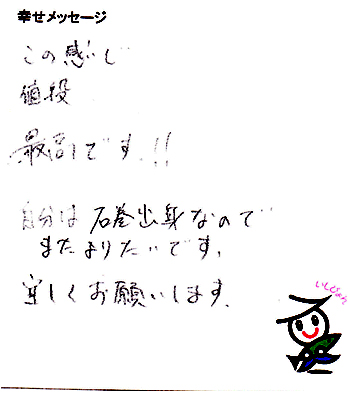 幸せメッセージ
この感じ
値段
最高です.!!
自分は石巻出身なので
またよりたいです.
宜しくお願いします.